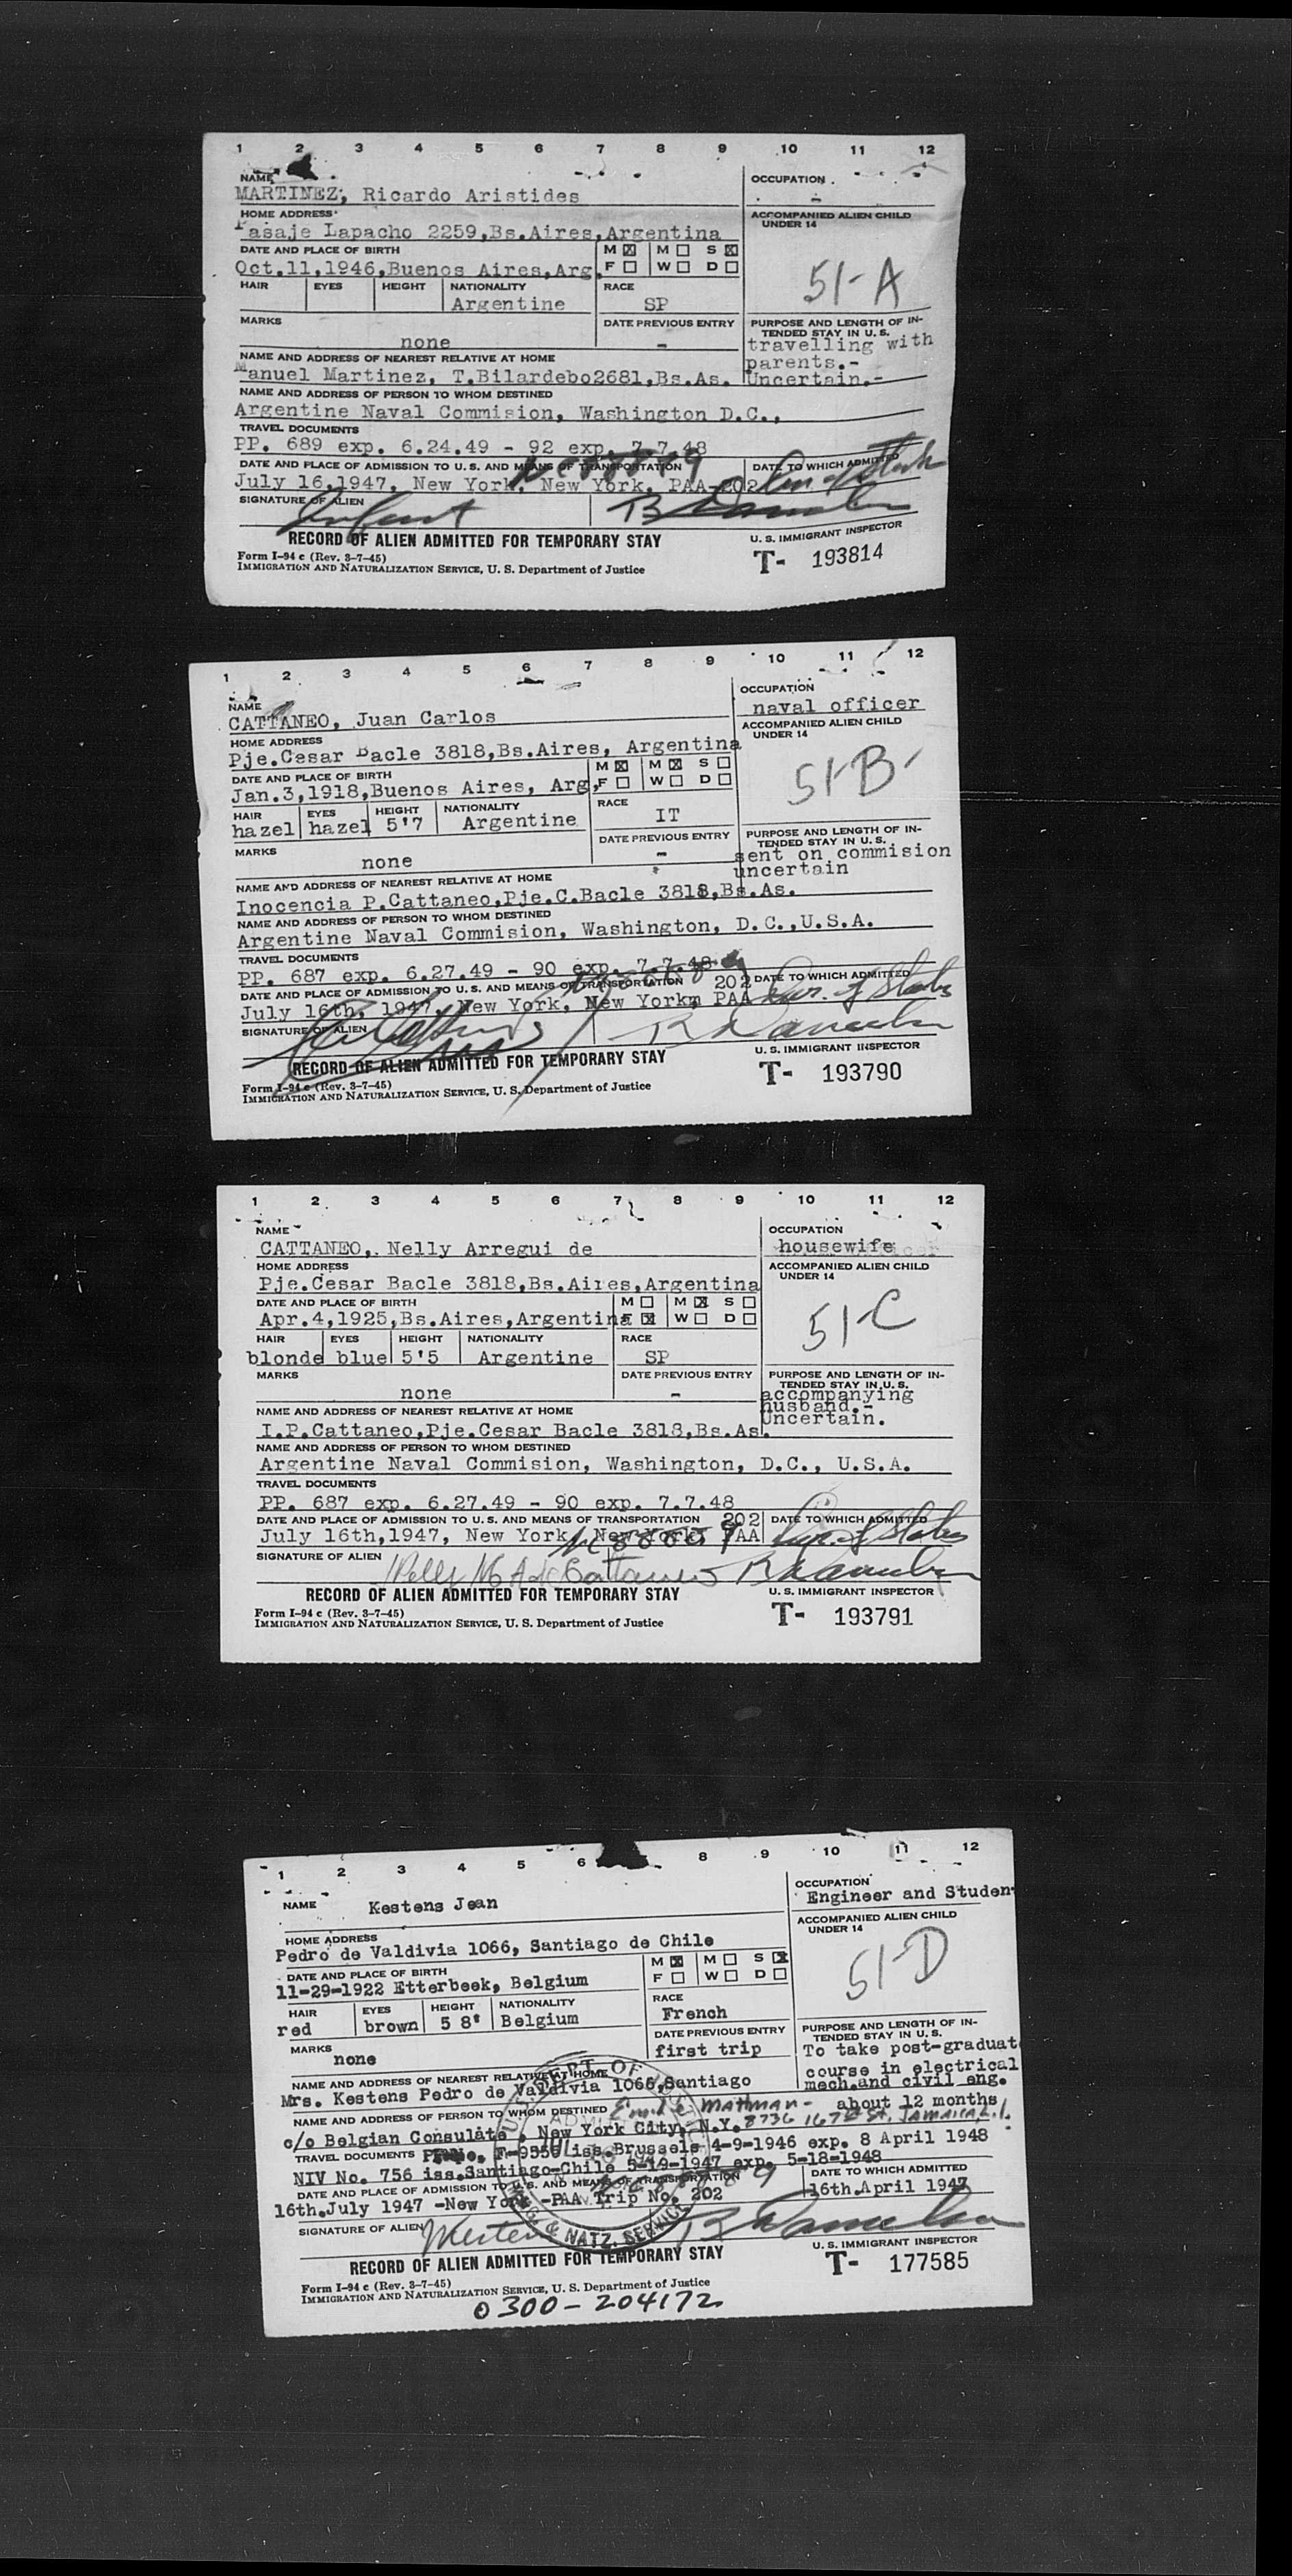 1 2 3 4 5 6 7 8 9 10 11 12
NAME
MARTINEZ, Ricardo Aristides
OCCUPATION
-
HOME ADDRESS
Pasaje Lapacho 2259,Bs.Aires,Argentina
ACCOMPANIED ALIEN CHILD
UNDER 14
51-A
DATE AND PLACE OF BIRTH
Oct.11,1946,Buenos Aires,Arg.
M ☒ M ☐ S ☒
F ☐ W ☐ D ☐
HAIR EYES HEIGHT NATIONALITY RACE
Argentine SP
MARKS
none
DATE PREVIOUS ENTRY
-
PURPOSE AND LENGTH OF IN-
TENDED STAY IN U. S.
travelling with
parents.-
Uncertain.-
NAME AND ADDRESS OF NEAREST RELATIVE AT HOME
Manuel Martinez, T.Bilardebo2681,Bs.As.
NAME AND ADDRESS OF PERSON TO WHOM DESTINED
Argentine Naval Commision, Washington D.C.,
TRAVEL DOCUMENTS
PP. 689 exp. 6.24.49 - 92 exp. 7.7.48
DATE AND PLACE OF ADMISSION TO U. S. AND MEANS OF TRANSPORTATION DATE TO WHICH ADMITTED
July 16,1947, New York, New York, PAA-202
SIGNATURE OF ALIEN
Infant
RECORD OF ALIEN ADMITTED FOR TEMPORARY STAY
U. S. IMMIGRANT INSPECTOR
Form I-94 c (Rev. 3-7-45)
IMMIGRATION AND NATURALIZATION SERVICE, U. S. Department of Justice
T- 193814
1 2 3 4 5 6 7 8 9 10 11 12
NAME
CATTANEO, Juan Carlos
OCCUPATION
naval officer
HOME ADDRESS
Pje.Cesar Bacle 3818,Bs.Aires, Argentina
ACCOMPANIED ALIEN CHILD
UNDER 14
51-B-
DATE AND PLACE OF BIRTH
Jan.3,1918,Buenos Aires, Arg,
M ☒ M ☒ S ☐
F ☐ W ☐ D ☐
HAIR EYES HEIGHT NATIONALITY RACE
hazel hazel 5'7 Argentine IT
MARKS
none
DATE PREVIOUS ENTRY
-
PURPOSE AND LENGTH OF IN-
TENDED STAY IN U. S.
sent on commision
uncertain
NAME AND ADDRESS OF NEAREST RELATIVE AT HOME
Inocencia P.Cattaneo,Pje.C.Bacle 3818,Bs.As.
NAME AND ADDRESS OF PERSON TO WHOM DESTINED
Argentine Naval Commision, Washington, D.C.,U.S.A.
TRAVEL DOCUMENTS
PP. 687 exp. 6.27.49 - 90 exp. 7.7.48
DATE AND PLACE OF ADMISSION TO U. S. AND MEANS OF TRANSPORTATION 202 DATE TO WHICH ADMITTED
July 16th, 1947, New York, New Yorkm PAA Dur. of Status
SIGNATURE OF ALIEN
RECORD OF ALIEN ADMITTED FOR TEMPORARY STAY
U. S. IMMIGRANT INSPECTOR
Form I-94 c (Rev. 3-7-45)
IMMIGRATION AND NATURALIZATION SERVICE, U. S. Department of Justice
T- 193790
1 2 3 4 5 6 7 8 9 10 11 12
NAME
CATTANEO, Nelly Arregui de
OCCUPATION
housewife
HOME ADDRESS
Pje.Cesar Bacle 3818,Bs.Aires,Argentina
ACCOMPANIED ALIEN CHILD
UNDER 14
51-C
DATE AND PLACE OF BIRTH
Apr.4,1925,Bs.Aires,Argentina
M ☐ M ☒ S ☐
F ☒ W ☐ D ☐
HAIR EYES HEIGHT NATIONALITY RACE
blonde blue 5'5 Argentine SP
MARKS
none
DATE PREVIOUS ENTRY
-
PURPOSE AND LENGTH OF IN-
TENDED STAY IN U. S.
accompanying
husband.-
Uncertain.
NAME AND ADDRESS OF NEAREST RELATIVE AT HOME
I.P.Cattaneo,Pje.Cesar Bacle 3818,Bs.As.
NAME AND ADDRESS OF PERSON TO WHOM DESTINED
Argentine Naval Commision, Washington, D.C., U.S.A.
TRAVEL DOCUMENTS
PP. 687 exp. 6.27.49 - 90 exp. 7.7.48
DATE AND PLACE OF ADMISSION TO U. S. AND MEANS OF TRANSPORTATION 202 DATE TO WHICH ADMITTED
July 16th,1947, New York, New York, PAA Dur. of Status
SIGNATURE OF ALIEN
RECORD OF ALIEN ADMITTED FOR TEMPORARY STAY
U. S. IMMIGRANT INSPECTOR
Form I-94 c (Rev. 3-7-45)
IMMIGRATION AND NATURALIZATION SERVICE, U. S. Department of Justice
T- 193791
1 2 3 4 5 6 8 9 10 11 12
NAME Kestens Jean
OCCUPATION
Engineer and Studen
HOME ADDRESS
Pedro de Valdivia 1066, Santiago de Chile
ACCOMPANIED ALIEN CHILD
UNDER 14
51-D
DATE AND PLACE OF BIRTH
11-29-1922 Etterbeek, Belgium
M ☒ M ☐ S ☒
F ☐ W ☐ D ☐
HAIR EYES HEIGHT NATIONALITY RACE
red brown 5 8' Belgium French
MARKS
none
DATE PREVIOUS ENTRY
first trip
PURPOSE AND LENGTH OF IN-
TENDED STAY IN U. S.
To take post-graduat
course in electrical
mech.and civil eng.
about 12 months
NAME AND ADDRESS OF NEAREST RELATIVE AT HOME
Mrs. Kestens Pedro de Valdivia 1066,Santiago
NAME AND ADDRESS OF PERSON TO WHOM DESTINED
c/o Belgian Consulate, New York City, N.Y. 8736 167th St. JAMAICA, L.I.
TRAVEL DOCUMENTS F-9556 iss.Brussels 4-9-1946 exp. 8 April 1948
NIV No. 756 iss.Santiago-Chile 5-19-1947 exp. 5-18-1948
DATE AND PLACE OF ADMISSION TO U. S. AND MEANS OF TRANSPORTATION DATE TO WHICH ADMITTED
16th.July 1947 -New York -PAA Trip No. 202 16th.April 1947
SIGNATURE OF ALIEN
RECORD OF ALIEN ADMITTED FOR TEMPORARY STAY
U. S. IMMIGRANT INSPECTOR
Form I-94 c (Rev. 3-7-45)
IMMIGRATION AND NATURALIZATION SERVICE, U. S. Department of Justice
T- 177585
0300-204172